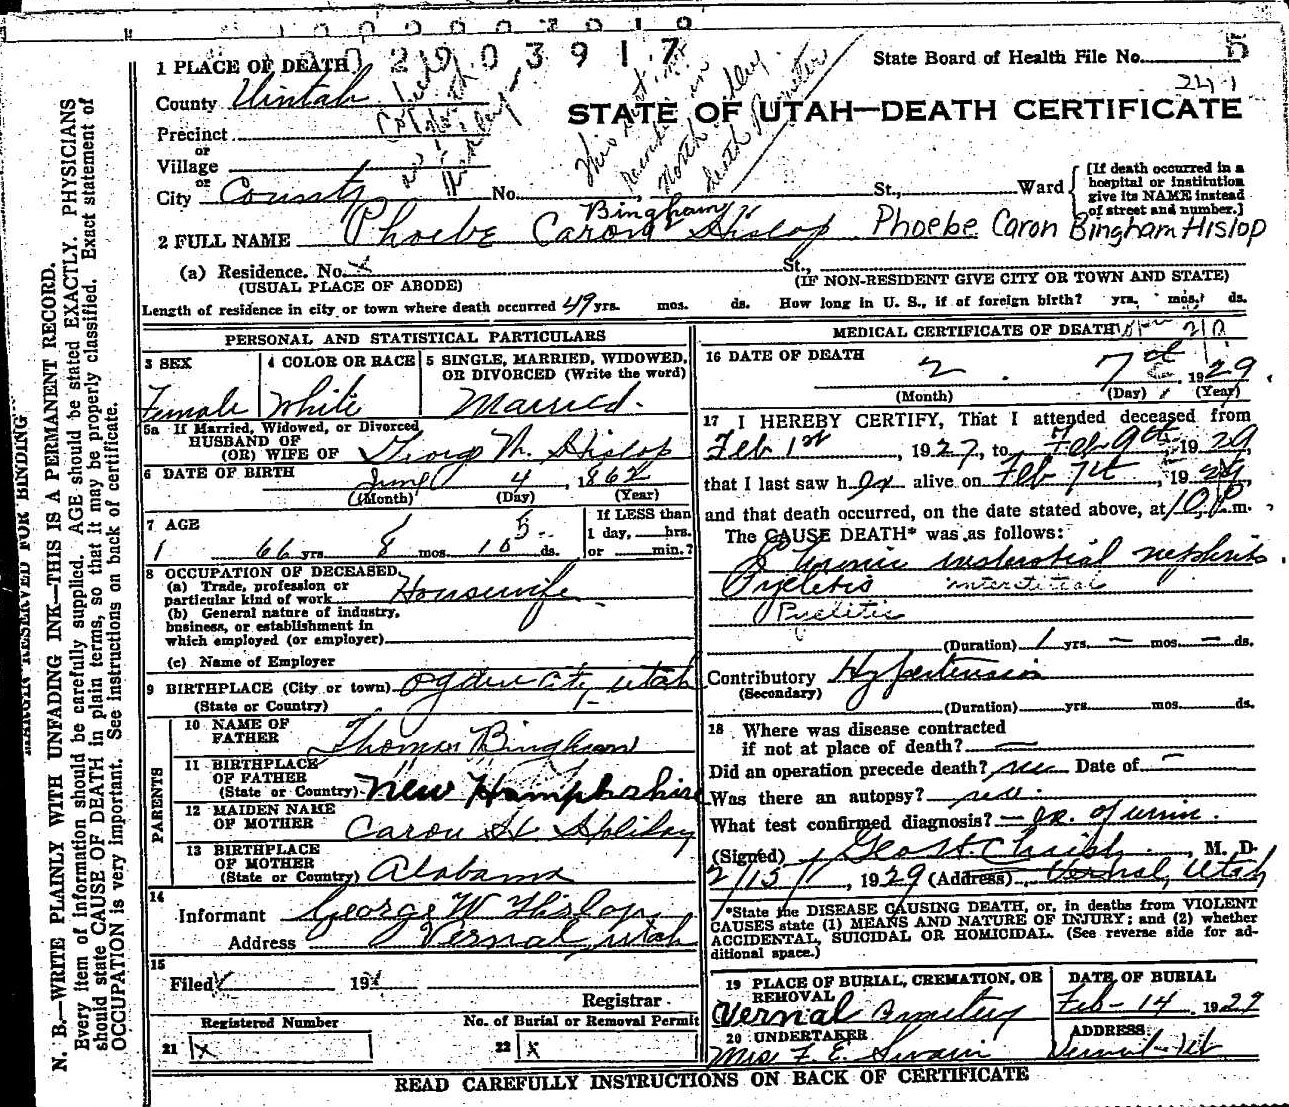 2903917
State Board of Health File No. 5
241
1 PLACE OF DEATH
County Uintah
STATE OF UTAH—DEATH CERTIFICATE
Precinct
or
Village
or
City County No. St., Ward
[If death occurred in a
hospital or institution
give its NAME instead
of street and number.]
Bingham
2 FULL NAME Phoebe Caron Hislop Phoebe Caron Bingham Hislop
(a) Residence. No. x St.,
(USUAL PLACE OF ABODE) (IF NON-RESIDENT GIVE CITY OR TOWN AND STATE)
Length of residence in city or town where death occurred 49 yrs. mos. ds. How long in U. S., if of foreign birth? yrs. mos. ds.
PERSONAL AND STATISTICAL PARTICULARS
3 SEX
Female
4 COLOR OR RACE
White
5 SINGLE, MARRIED, WIDOWED,
OR DIVORCED (Write the word)
Married.
5a If Married, Widowed, or Divorced
HUSBAND OF
(OR) WIFE OF George W. Hislop
6 DATE OF BIRTH June 4, 1862
(Month) (Day) (Year)
7 AGE
66 yrs. 8 mos. ds.
If LESS than
1 day, hrs.
or min.?
8 OCCUPATION OF DECEASED
(a) Trade, profession or
particular kind of work Housewife
(b) General nature of industry,
business, or establishment in
which employed (or employer)
(c) Name of Employer
9 BIRTHPLACE (City or town) Ogden City, Utah
(State or Country)
PARENTS
10 NAME OF
FATHER Thomas Bingham
11 BIRTHPLACE
OF FATHER
(State or Country) New Hampshire
12 MAIDEN NAME
OF MOTHER Caron H. Holiday
13 BIRTHPLACE
OF MOTHER
(State or Country) Alabama
14
Informant George W Hislop
Address Vernal, Utah
15
Filed 192
Registrar
Registered Number
21 x
No. of Burial or Removal Permit
22 x
MEDICAL CERTIFICATE OF DEATH
16 DATE OF DEATH
2 7th 1929
(Month) (Day) (Year)
17 I HEREBY CERTIFY, That I attended deceased from
Feb 1st, 1927, to Feb 9th, 1929,
that I last saw her alive on Feb 7th, 1929,
and that death occurred, on the date stated above, at 10 P m.
The CAUSE DEATH* was as follows:
Chronic interstitial nephritis
Pyelitis interstitial
Pyelitis
(Duration) 1 yrs. — mos. — ds.
Contributory Hypertension
(Secondary)
(Duration) yrs. mos. ds.
18 Where was disease contracted
if not at place of death? —
Did an operation precede death? no Date of —
Was there an autopsy? no.
What test confirmed diagnosis? — ex. of urine.
(Signed) Geo. H. Christy, M. D.
2/15, 1929 (Address) Vernal, Utah
*State the DISEASE CAUSING DEATH, or, in deaths from VIOLENT
CAUSES state (1) MEANS AND NATURE OF INJURY; and (2) whether
ACCIDENTAL, SUICIDAL OR HOMICIDAL. (See reverse side for ad-
ditional space.)
19 PLACE OF BURIAL, CREMATION, OR
REMOVAL
Vernal Cemetery
DATE OF BURIAL
Feb-14 1929
20 UNDERTAKER
Mrs F. E. Swain
ADDRESS
Vernal-Ut
READ CAREFULLY INSTRUCTIONS ON BACK OF CERTIFICATE
MARGIN RESERVED FOR BINDING
N. B.—WRITE PLAINLY WITH UNFADING INK—THIS IS A PERMANENT RECORD.
Every item of information should be carefully supplied. AGE should be stated EXACTLY. PHYSICIANS
should state CAUSE OF DEATH in plain terms, so that it may be properly classified. Exact statement of
OCCUPATION is very important. See instructions on back of certificate.